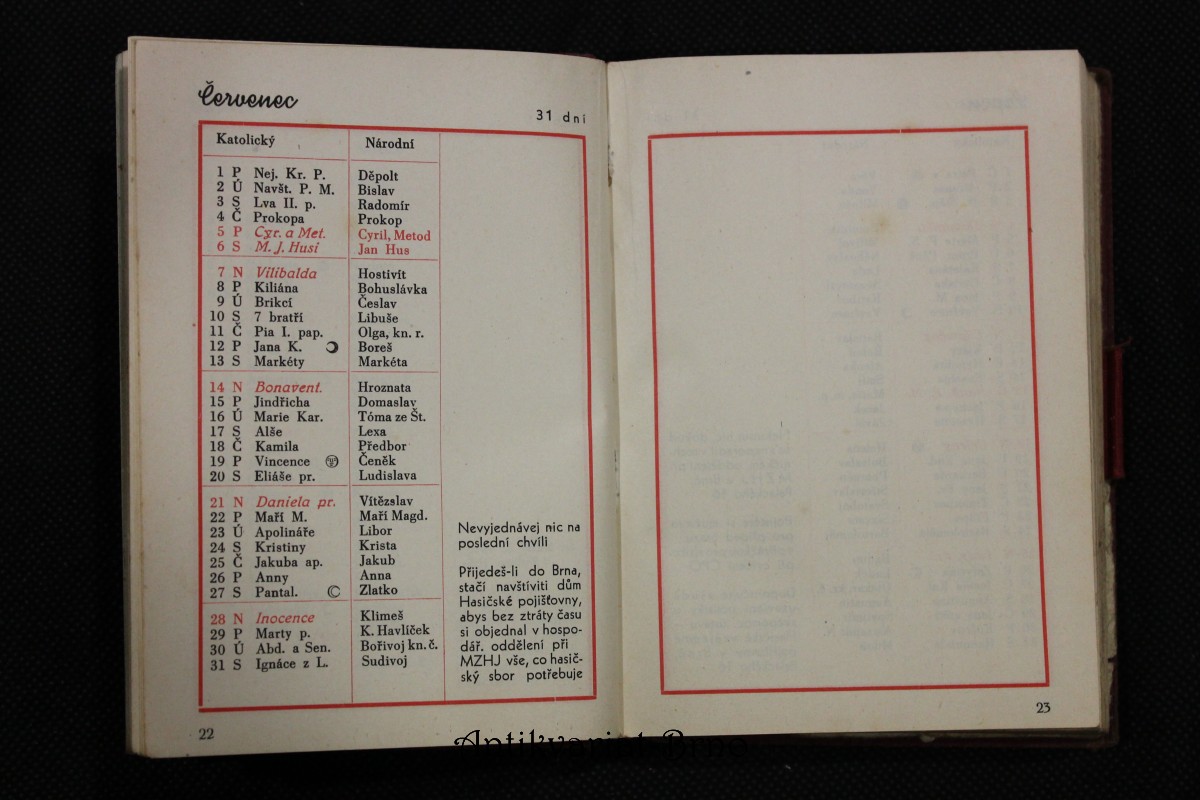 Červenec
31 dní
Katolický Národní
1 P Nej. Kr. P. Děpolt
2 Ú Navšt. P. M. Bislav
3 S Lva II. p. Radomír
4 Č Prokopa Prokop
5 P Cyr. a Met. Cyril, Metod
6 S M. J. Husi Jan Hus
7 N Vilibalda Hostivít
8 P Kiliána Bohuslávka
9 Ú Brikcí Česlav
10 S 7 bratří Libuše
11 Č Pia I. pap. Olga, kn. r.
12 P Jana K. Boreš
13 S Markéty Markéta
14 N Bonavent. Hroznata
15 P Jindřicha Domaslav
16 Ú Marie Kar. Tóma ze Št.
17 S Alše Lexa
18 Č Kamila Předbor
19 P Vincence Čeněk
20 S Eliáše pr. Ludislava
21 N Daniela pr. Vítězslav
22 P Maří M. Maří Magd.
23 Ú Apolináře Libor
24 S Kristiny Krista
25 Č Jakuba ap. Jakub
26 P Anny Anna
27 S Pantal. Zlatko
28 N Inocence Klimeš
29 P Marty p. K. Havlíček
30 Ú Abd. a Sen. Bořivoj kn. č.
31 S Ignáce z L. Sudivoj
Nevyjednávej nic na
poslední chvíli
Přijedeš-li do Brna,
stačí navštíviti dům
Hasičské pojišťovny,
abys bez ztráty času
si objednal v hospo-
dář. oddělení při
MZHJ vše, co hasič-
ský sbor potřebuje
22
23
Antikvariat Brno